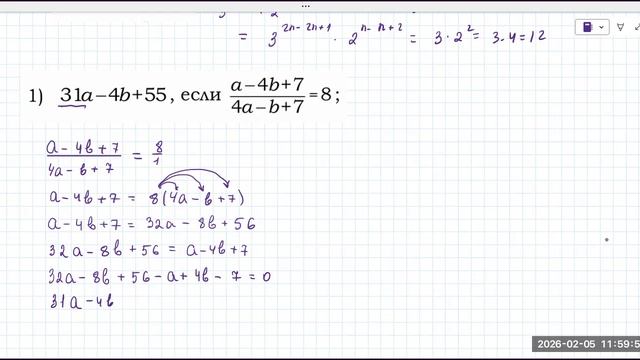 = 3^{2n-2n+1} · 2^{n-n+2} = 3·2^2 = 3·4=12
1) 31a−4b+55, если \frac{a−4b+7}{4a−b+7}=8;
\frac{a-4b+7}{4a-b+7} = \frac{8}{1}
a-4b+7 = 8(4a-b+7)
a-4b+7 = 32a-8b+56
32a-8b+56 = a-4b+7
32a-8b+56-a+4b-7=0
31a-4b
2026-02-05 11:59:5